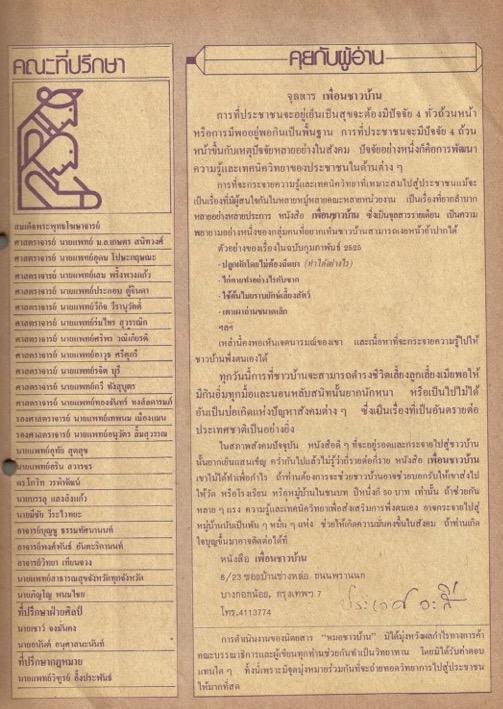 คณะที่ปรึกษา
สมเด็จพระพุทธโฆษาจารย์
ศาสตราจารย์ นายแพทย์ ม.ล.เกษตร สนิทวงศ์
ศาสตราจารย์ นายแพทย์อุดม โปษะกฤษณะ
ศาสตราจารย์ นายแพทย์เสม พริ้งพวงแก้ว
ศาสตราจารย์ นายแพทย์ประกอบ ตู้จินดา
ศาสตราจารย์ นายแพทย์วีกิจ วีรานุวัตติ์
ศาสตราจารย์ นายแพทย์ร่มไทร สุวรรณิก
ศาสตราจารย์ นายแพทย์ศรีพร วณิเกียรติ
ศาสตราจารย์ นายแพทย์อาวุธ ศรีศุกรี
ศาสตราจารย์ นายแพทย์รจิต บุรี
ศาสตราจารย์ นายแพทย์กวี ทังสุบุตร
ศาสตราจารย์ นายแพทย์ทองจันทร์ หงส์ลดารมภ์
รองศาสตราจารย์ นายแพทย์เทพนม เมืองแมน
รองศาสตราจารย์ นายแพทย์อนุวัตร ลิ้มสุวรรณ
นายแพทย์อุทัย สุดสุข
นายแพทย์อรัน
ดร.โกวิท วรพิพัฒน์
นายบรรลุ
นายมีชัย วีระไวทยะ
อาจารย์บุญชู ธรรมทัศนานนท์
อาจารย์พงศ์พันธ์
อาจารย์วิทยา เทียนจวง
นายแพทย์สาธารณสุขจังหวัดทุกจังหวัด
นายภิญโญ พนมไชย
ที่ปรึกษาฝ่ายศิลป์
นายเชาว์ จงมั่นคง
นายอนันต์ อนุศาสนะนันท์
ที่ปรึกษากฎหมาย
นายแพทย์วิฑูรย์ อึ้งประพันธ์
คุยกับผู้อ่าน
จุลสาร เพื่อนชาวบ้าน
การที่ประชาชนจะอยู่เย็นเป็นสุขจะต้องมีปัจจัย 4 ทั่วถ้วนหน้า
หรือการมีพออยู่พอกินเป็นพื้นฐาน การที่ประชาชนจะมีปัจจัย 4 ถ้วน
หน้าขึ้นกับเหตุปัจจัยหลายอย่างในสังคม ปัจจัยอย่างหนึ่งก็คือการพัฒนา
ความรู้และเทคนิควิทยาของประชาชนในด้านต่าง ๆ
การที่จะกระจายความรู้และเทคนิควิทยาที่เหมาะสมไปสู่ประชาชนแม้จะ
เป็นเรื่องที่มีผู้สนใจกันในหลายหมู่หลายคณะหลายหน่วยงาน เป็นเรื่องที่ยากลำบาก
หลายอย่างหลายประการ หนังสือ เพื่อนชาวบ้าน ซึ่งเป็นจุลสารรายเดือน เป็นความ
พยายามอย่างหนึ่งของกลุ่มคนที่อยากเห็นชาวบ้านสามารถเงยหน้าอ้าปากได้
ตัวอย่างของเรื่องในฉบับกุมภาพันธ์ 2525
-ปลูกผักโดยไม่ต้องฉีดยา (ทำได้อย่างไร)
-ไก่ตายทำอย่างไรกับซาก
-ใช้ต้นไมยราบยักษ์เลี้ยงสัตว์
-เตาเผาถ่านขนาดเล็ก
ฯลฯ
เหล่านี้คงพอเห็นเจตนารมณ์ของเขา และเนื้อหาที่จะกระจายความรู้ไปให้
ชาวบ้านพึ่งตนเองได้
ทุกวันนี้การที่ชาวบ้านจะสามารถดำรงชีวิตเลี้ยงลูกเลี้ยงเมียพอให้
มีกินอิ่มทุกมื้อและนอนหลับสนิทนั้นยากนักหนา หรือเป็นไปไม่ได้
อันเป็นบ่อเกิดแห่งปัญหาสังคมต่าง ๆ ซึ่งเป็นเรื่องที่เป็นอันตรายต่อ
ประเทศชาติเป็นอย่างยิ่ง
ในสภาพสังคมปัจจุบัน หนังสือดี ๆ ที่จะอยู่รอดและกระจายไปสู่ชาวบ้าน
นั้นยากเย็นแสนเข็ญ คว่ำกันไปแล้วไม่รู้ว่ากี่รายต่อกี่ราย หนังสือ เพื่อนชาวบ้าน
เขาไม่ได้ทำเพื่อกำไร ถ้าท่านต้องการจะช่วยชาวบ้านอาจช่วยบอกรับให้เขาส่งไป
ให้วัด หรือโรงเรียน หรือหมู่บ้านในชนบท ปีหนึ่งก็ 50 บาท เท่านั้น ถ้าช่วยกัน
หลาย ๆ แรง ความรู้และเทคนิควิทยาเพื่อส่งเสริมการพึ่งตนเอง อาจกระจายไปสู่
หมู่บ้านนับเป็นพัน ๆ หมื่น ๆ แห่ง ช่วยให้เกิดความมั่นคงขึ้นในสังคม ถ้าท่านเกิด
ใจบุญขึ้นมาอาจติดต่อได้ที่
หนังสือ เพื่อนชาวบ้าน
6/23 ซอยบ้านช่างหล่อ ถนนพรานนก
บางกอกน้อย, กรุงเทพฯ 7
โทร.4113774
ประเวศ วะสี
การดำเนินงานของนิตยสาร "หมอชาวบ้าน" มิได้มุ่งหวังผลกำไรทางการค้า
คณะบรรณาธิการและผู้เขียนทุกท่านช่วยกันทำเป็นวิทยาทาน โดยมิได้รับค่าตอบ
แทนใด ๆ ทั้งนี้เพราะมีจุดมุ่งหมายร่วมกันที่จะถ่ายทอดวิทยาการไปสู่ประชาชน
ให้มากที่สุด